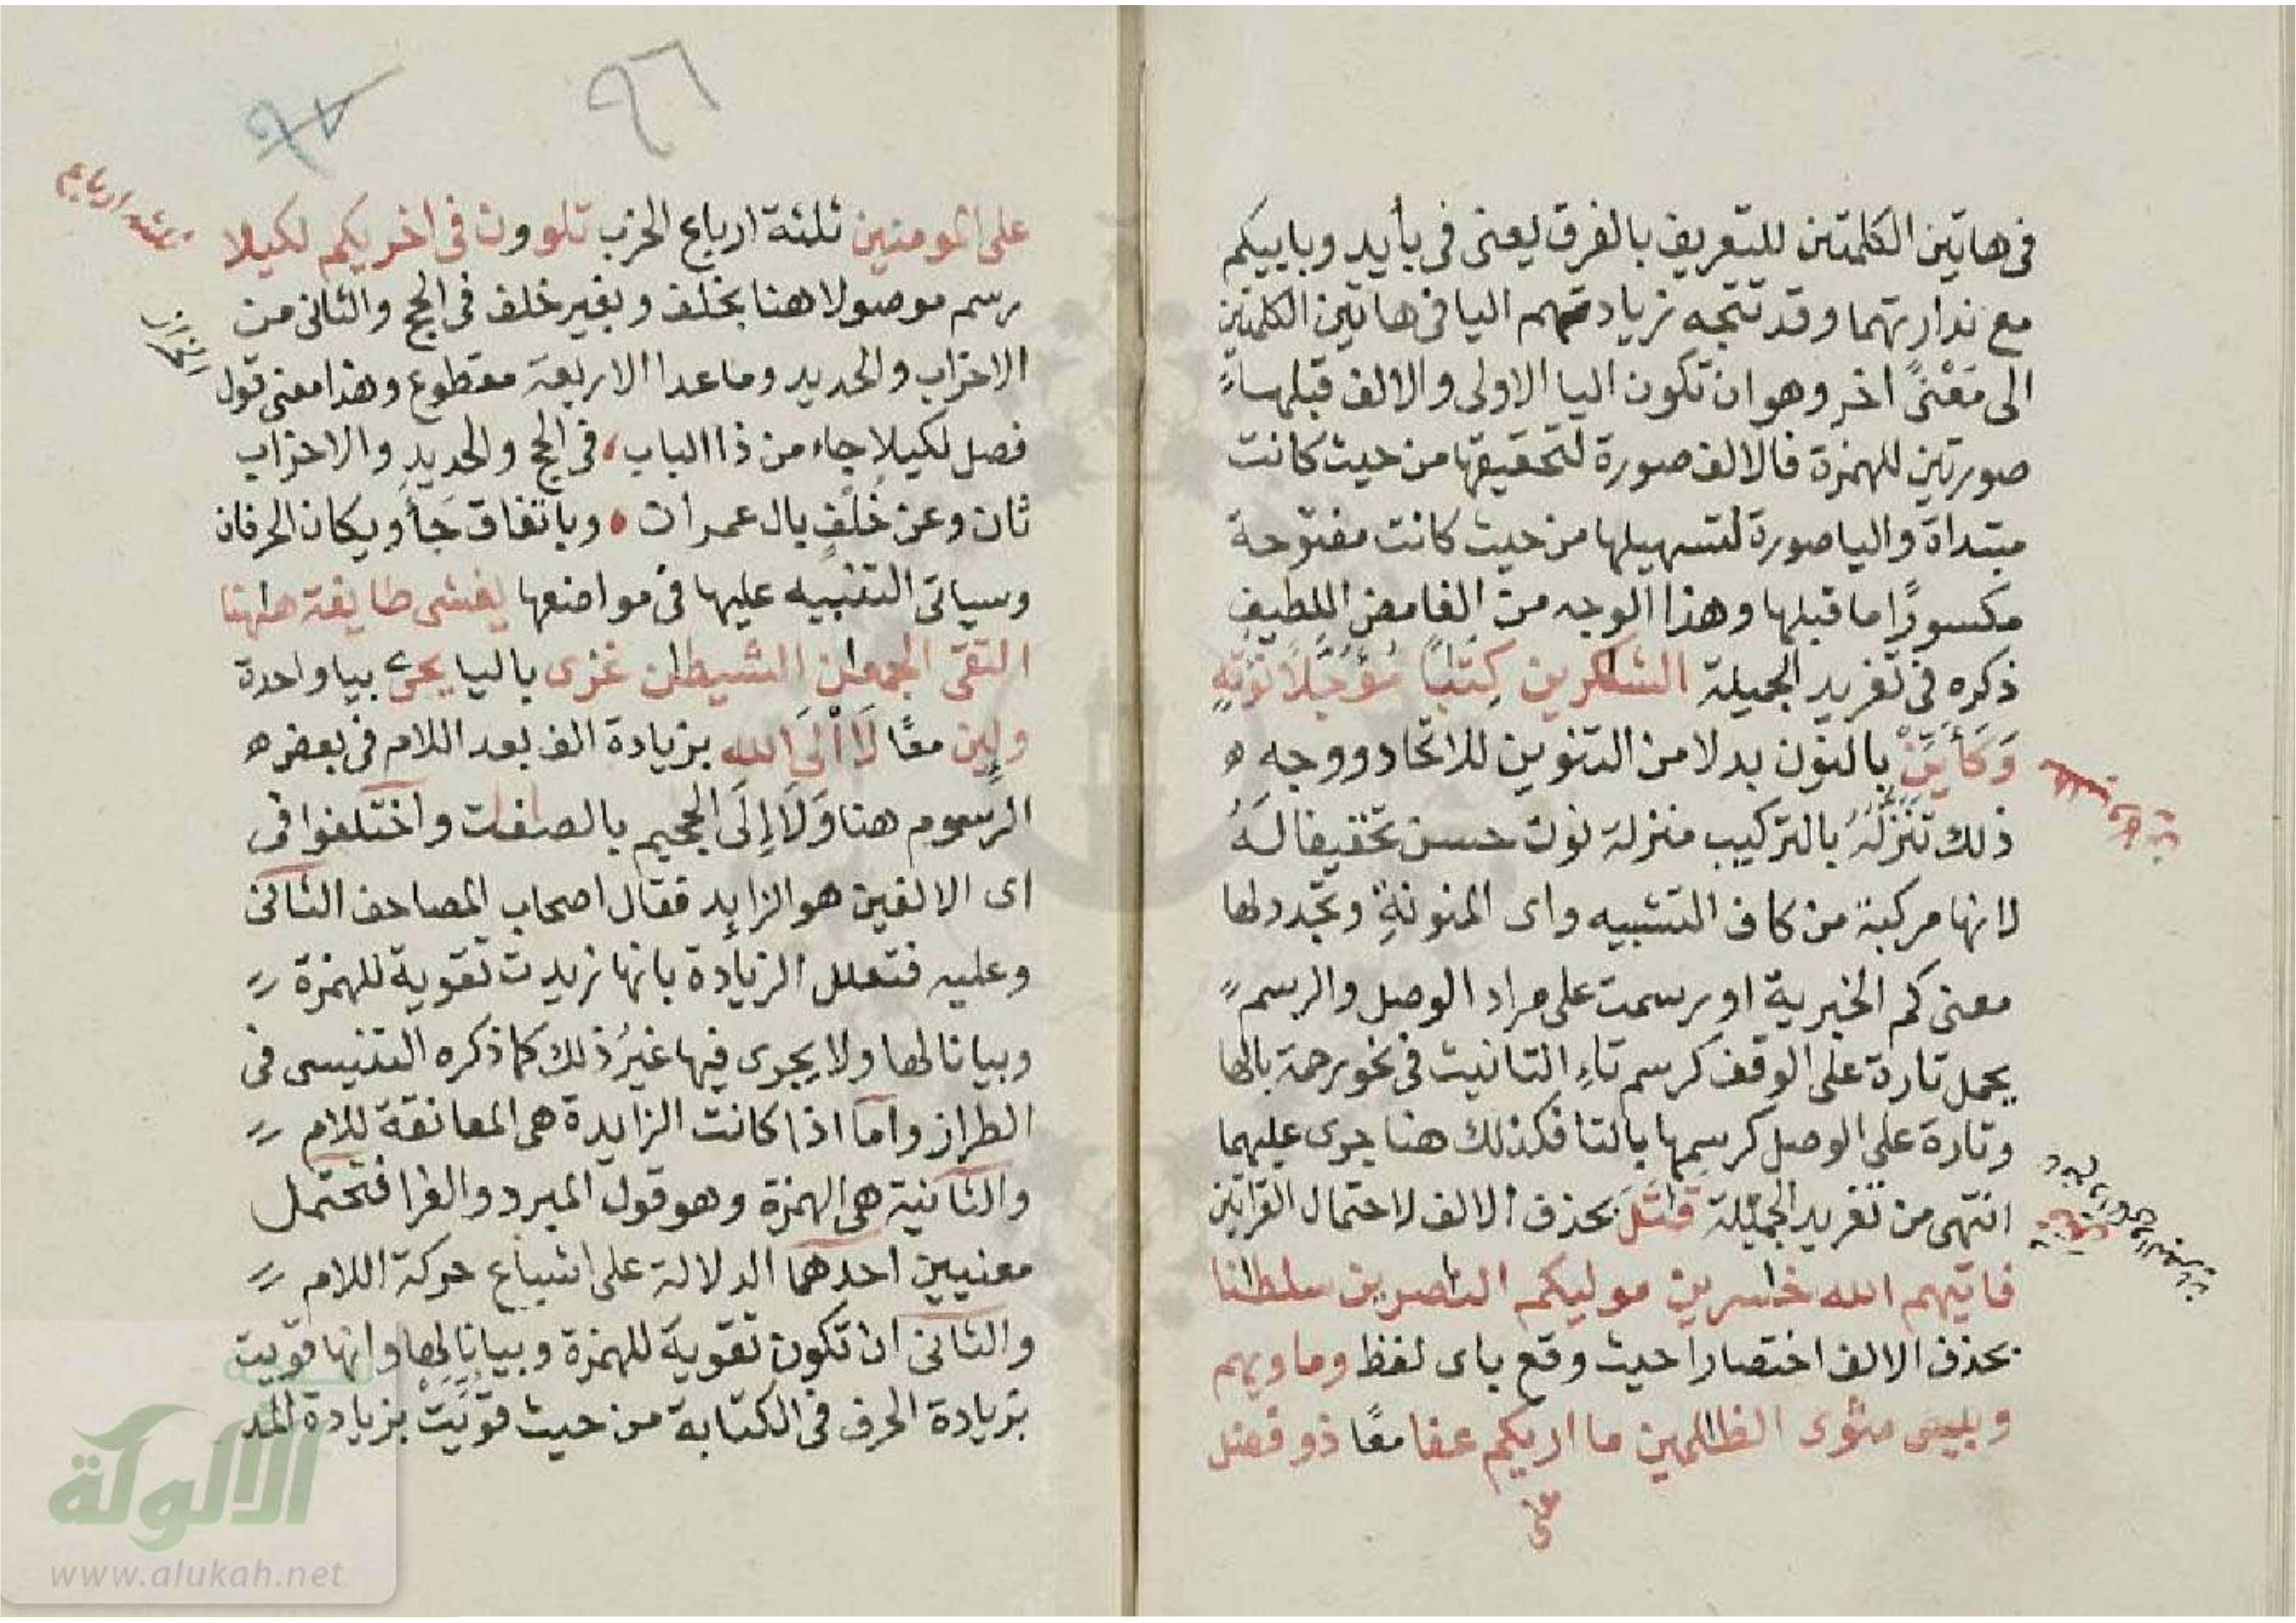 في هاتين الكلمتين للتعريف بالفرق يعنى في بأييد وباييكم
مع ندارتهما وقد تتجه زيادتهم اليا في هاتين الكلمتين
الى مَعْنىً اخر وهو ان تكون اليا الاولى والالف قبلها
صورتين للهمزة فالالف صورة لتحقيقها من حيث كانت
مبتداة واليا صورة لتسهيلها من حيث كانت مفتوحة
مكسورًا ما قبلها وهذا الوجه من الغامض اللطيف
ذكره في تغريد الجميلة الشاكرين كِتٰبًا مُؤَجَّلًا نؤته
وَكَأَيِّنْ بالنون بدلا من التنوين للاتحاد ووجه
ذلك تَنَزُّلُهُ بالتركيب منزلة نون حسن تخفيفا لَهُ
لانها مركبة من كاف التشبيه واى المنونةِ وتجدد لها
معنى كم الخبرية او رسمت على مراد الوصل والرسم
يحمل تارة على الوقف كرسم تاءِ التانيث في نحو رحمة بالها
وتارة على الوصل كرسمها بالتا فكذلك هنا جرى عليهما
انتهى من تغريد الجميلة قٰتَلَ بحذف الالف لاحتمال القراتين
فاتيهم الله خٰسرين موليكم النٰصرين سلطٰنا
بحذف الالف اختصارا حيث وقع باى لفظ وماويهم
وبيس مثوى الظٰلمين ما اريكم عفا معًا ذو فضل
على
٩٦
٩٧
على المومنين ثلثة ارباع الحزب تلوون في اخريكم لكيلا
رسم موصولا هنا بخلف وبغير خلف في الحج والثانى من
الاحزاب والحديد وما عدا الاربعة مقطوع وهذا معنى قول
الخراز
فصل لكيلا جاء من ذا الباب، في الحج والحديدِ والاحزاب
ثان وعن خُلْفٍ بال عمران، وباتفاق جَأ ويكان الحرفان
وسياتى التنبيه عليها في مواضعها يغشى طايفة هٰهنا
التقى الجمعٰن الشيطٰن غزى باليا يحى بيا واحدة
ولين معًا لَا اْلَى الله بزيادة الف بعد اللام في بعض
الرسوم هنا وَلَا إِلَى الجحيم بالصٰفٰت واختلفوا في
اى الالفين هو الزايد فقال اصحاب المصاحف الثانى
وعليه فتعلل الزيادة بانها زيدت تقوية للهمزة
وبيانا لها ولا يجرى فيها غيرُ ذلك كما ذكره التنيسى في
الطراز واما اذا كانت الزايدة هى المعانقة للام
والثانية هى الهمزة وهو قول المبرد والفرا فتحتمل
معنيين احدهما الدلالة على اشباع حركة اللام
والثانى ان تكون تقوية للهمزة وبيانا لها وانها قويت
بزيادة الحرف في الكتابة من حيث قوّيَتْ بزيادة المد
الألوكة
www.alukah.net